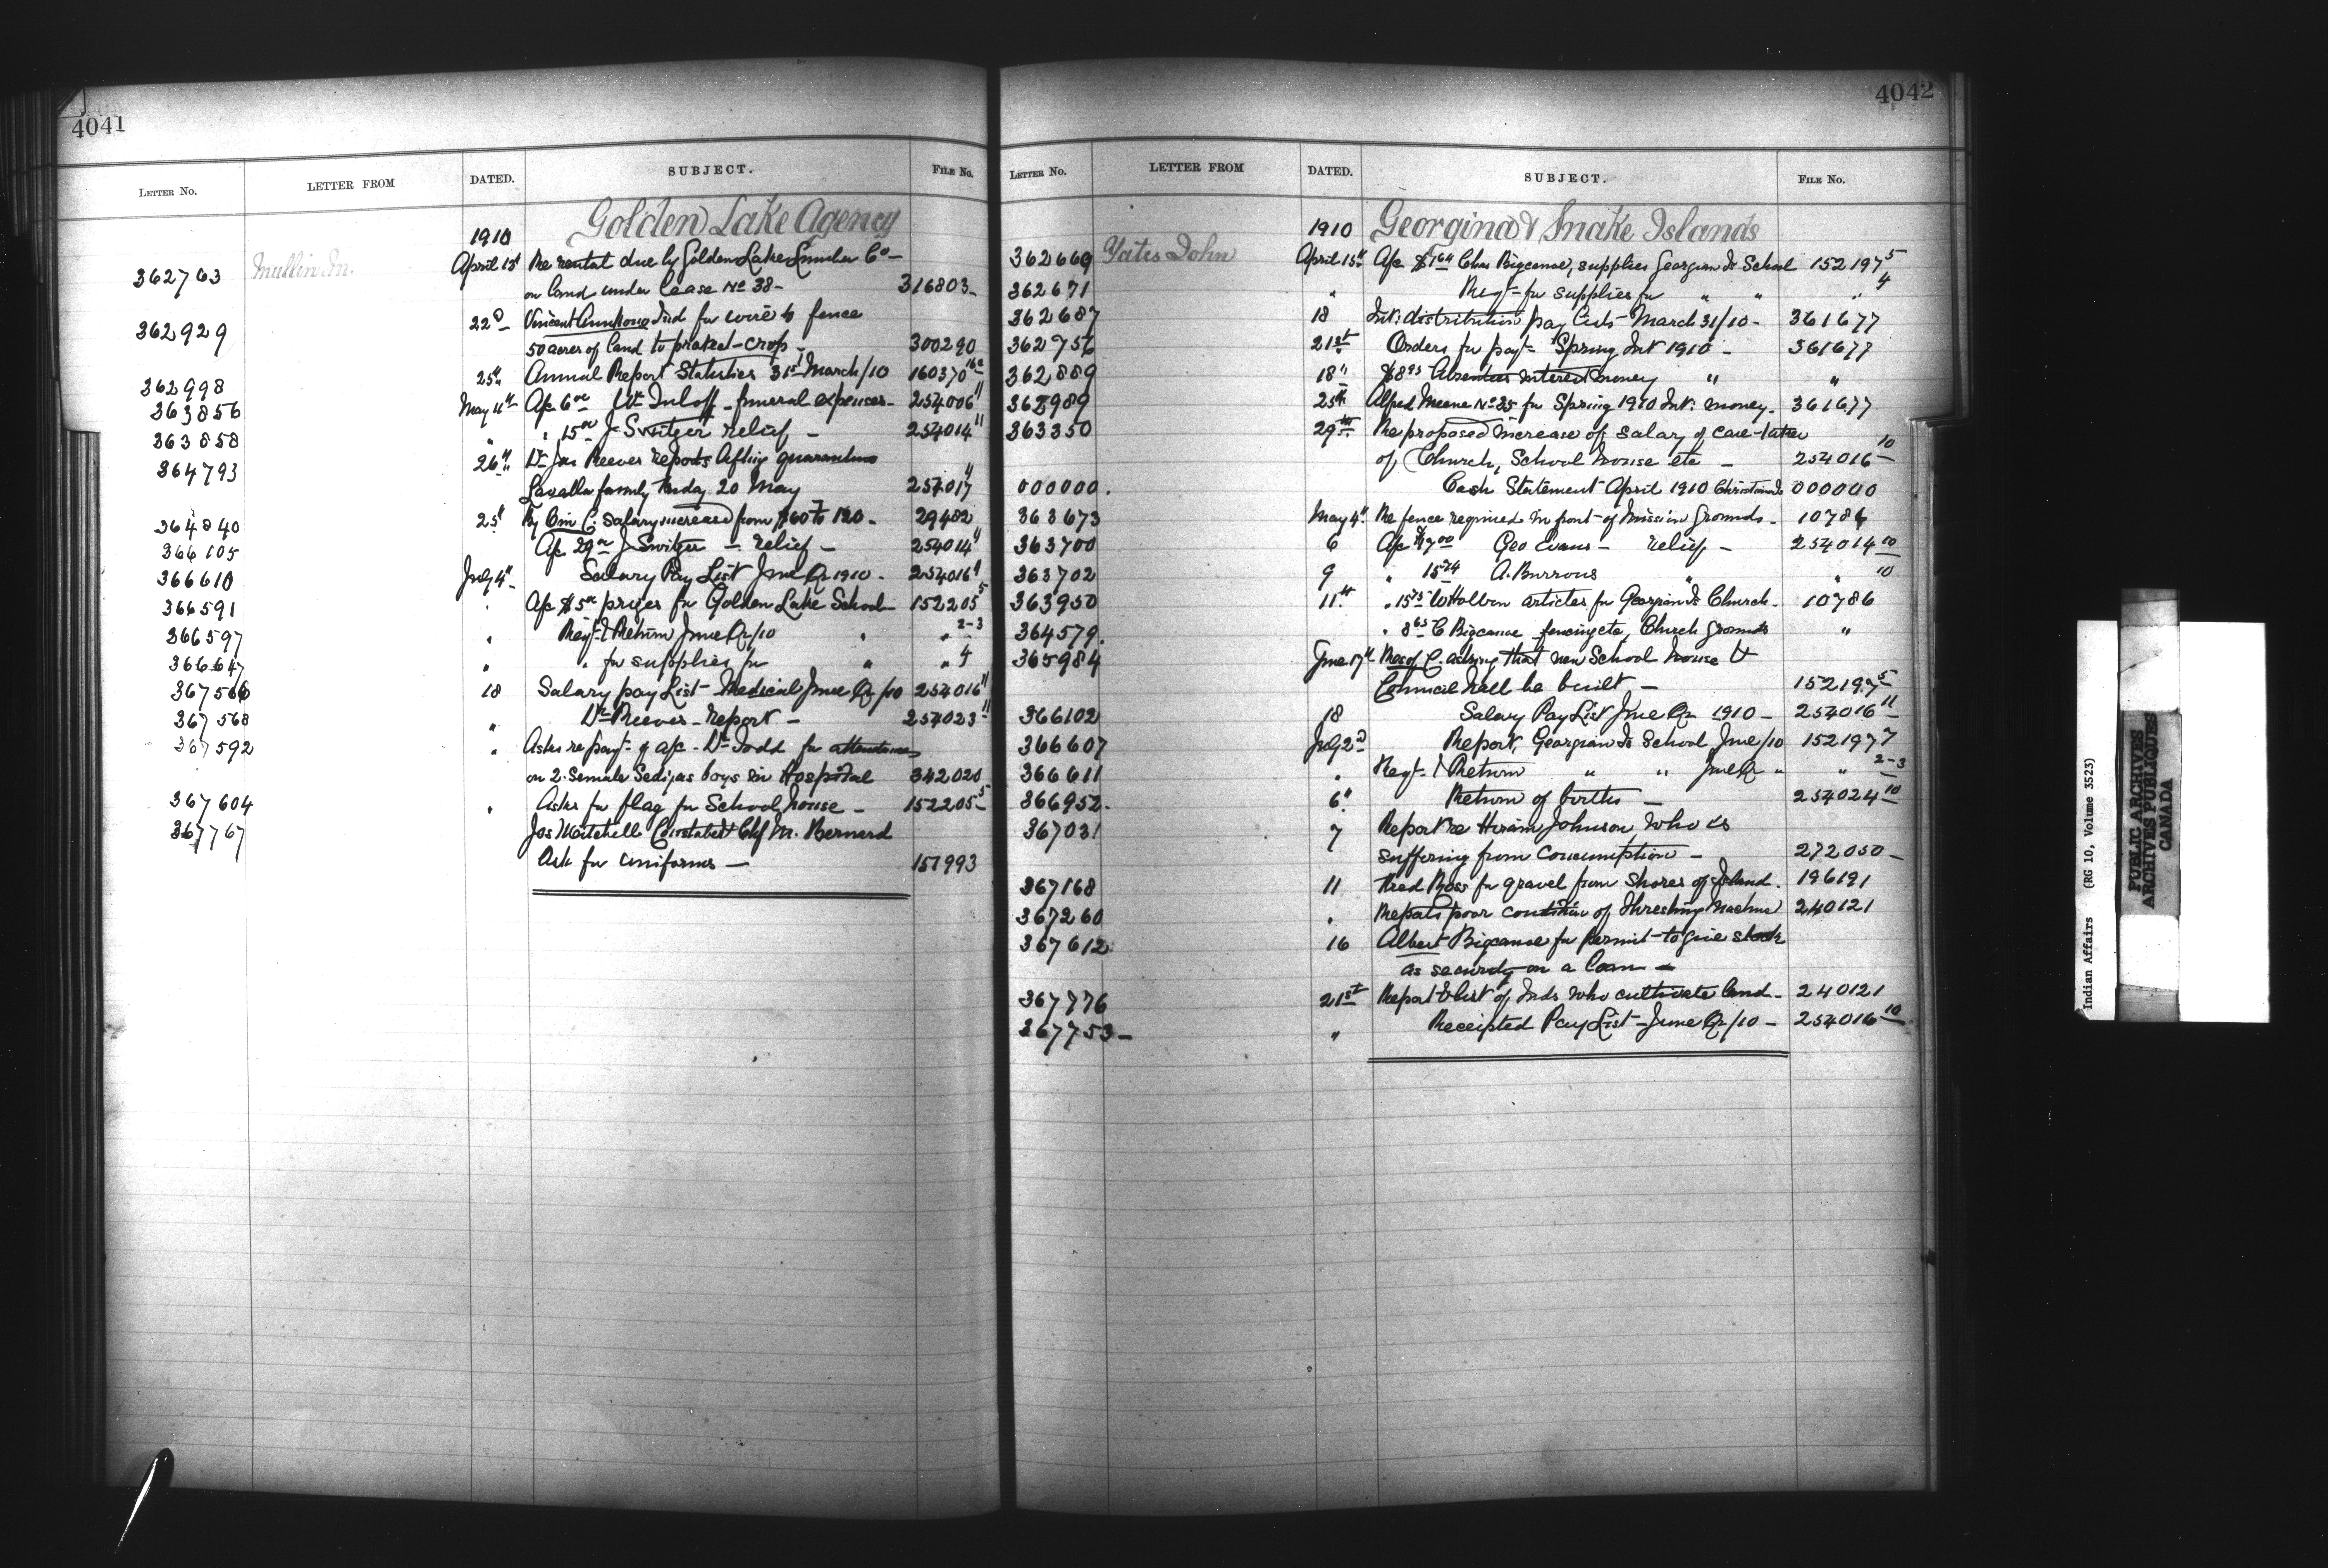 4041
LETTER No. LETTER FROM DATED. SUBJECT. FILE No.
1910 Golden Lake Agency
362763 Mullin M. April 15 Re rental due by Golden Lake Lumber Co
on land under lease No 38 - 316803
362929 22d Ind for wire to fence
50 acres of land to protect crop - 300290
362998 25th Annual Report Statistics 31st March/10 160370
363856 May 4th A/c 6 00 funeral expenses - 254006 11
363858 " " 15 00 J. Switzer relief - 254014 11
364793 26th Dr Jas Reeves reports lifting quarantine
Lavalle family 20 May 254017 11
364840 25th By C. salary increase from $60 to 120 - 29482
366105 A/c 29 00 J Switzer - relief - 254014 11
366610 July 4th Salary Pay List June Qr 1910 - 254016 11
366591 " A/c $5 00 prizes for Golden Lake School 152205 5
366597 " Reqt & Return June Qr/10 " " 2-3
366647 " " for supplies for " " 4
367566 18 Salary pay List - Medical June Qr/10 254016 11
367568 " Dr Reeves - Report - 254023 11
367592 " Asks re payt of a/c - Dr Todd for attendance
on 2 boys in Hospital 342020
367604 " Asks for flag for School house - 152205 5
367767 Jas Mitchell Constable & Chf M. Bernard
Ask for uniforms - 157993
4042
LETTER No. LETTER FROM DATED. SUBJECT. FILE No.
1910 Georgina & Snake Islands
362669 Yates John April 15th A/c Chas Bigcanoe, supplies Georgina Is School 152197 5
362671 " Reqt for supplies for " " " 4
362687 18 Int: distribution pay lists March 31/10 - 361677
362756 21st Orders for payt Spring Int 1910 - 361677
362889 18th $8 93 Absentees interest money " "
362989 25th Alfred No 35 for Spring 1910 Int: money - 361677
363350 29th Re proposed increase of salary of care-taker
of Church, School house etc - 254016 10
000000. Cash Statement April 1910 000000
363673 May 4th Re fence required in front of Mission Grounds - 10786
363700 6 A/c $7 00 Geo Evans - relief - 254014 10
363702 9 " 15 74 A. Burrows " " 10
363950 11th " 15 75 articles for Georgina Is Church - 10786
364579. " 8 65 C Bigcanoe fencing etc, Church Grounds "
365984 June 17th Res of C. asking that new School house &
Council hall be built - 152197 5
366102 18 Salary Pay List June Qr 1910 - 254016 11
366607 July 2d Report, Georgina Is School June/10 152197 7
366611 " Reqt & Return " " June Qr " " 2-3
366952. 6th Return of births - 254024 10
367031 7 Report re Hiram Johnson, who is
suffering from consumption - 272050 -
367168 11 Fred Ross for gravel from shores of Island. 196191
367260 " Reports poor condition of threshing machine 240121
367612 16 Albert Bigcanoe for permit to give stock
as security on a loan -
367776 21st Report & list of Inds who cultivate land - 240121
367753 - " Receipted Pay List - June Qr/10 - 254016 10
Indian Affairs (RG 10, Volume 3523)
PUBLIC ARCHIVES
ARCHIVES PUBLIQUES
CANADA